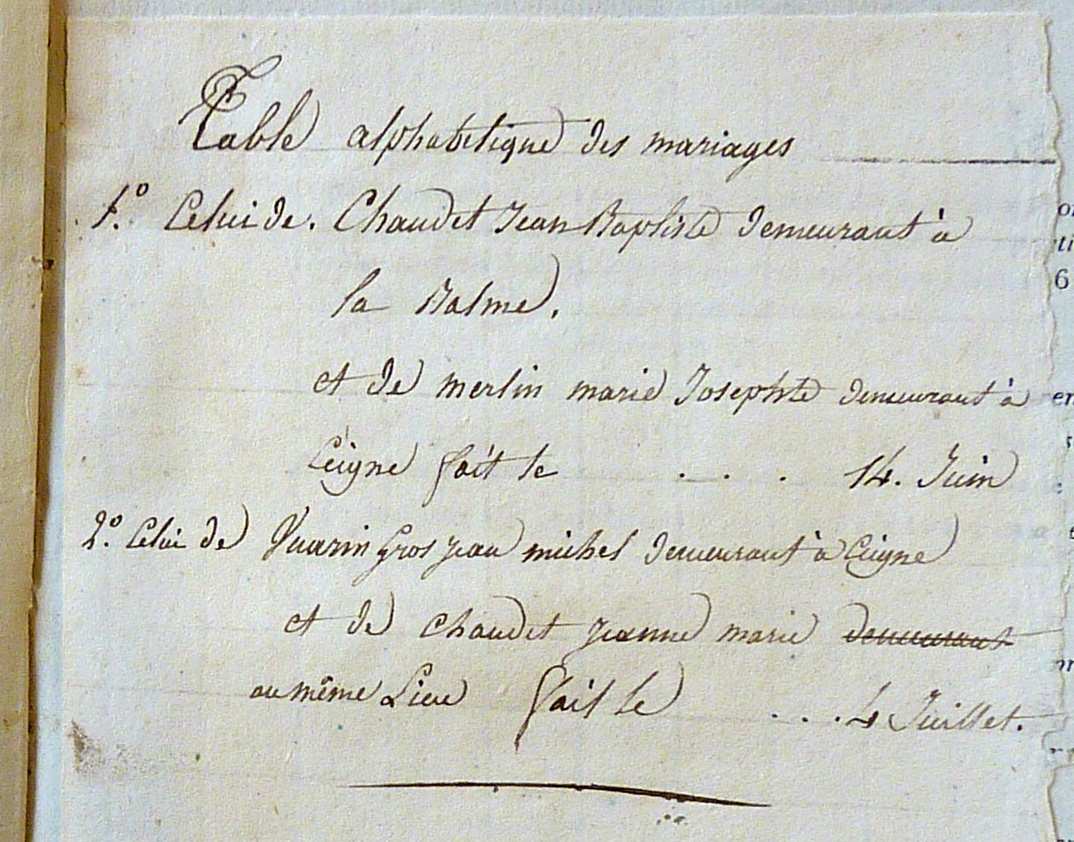 Table alphabetique des mariages
1.° Celui de. Chaudet Jean Baptiste demeurant à
la Balme.
et de merlin marie Josephte demeurant à
Ceigne fait le . . . 14. Juin
2.° Celui de Vuarin Gros jean michel demeurant à Ceigne
et de chaudet jeanne marie demeurant
au même Lieu fait le . . . 4 Juillet.